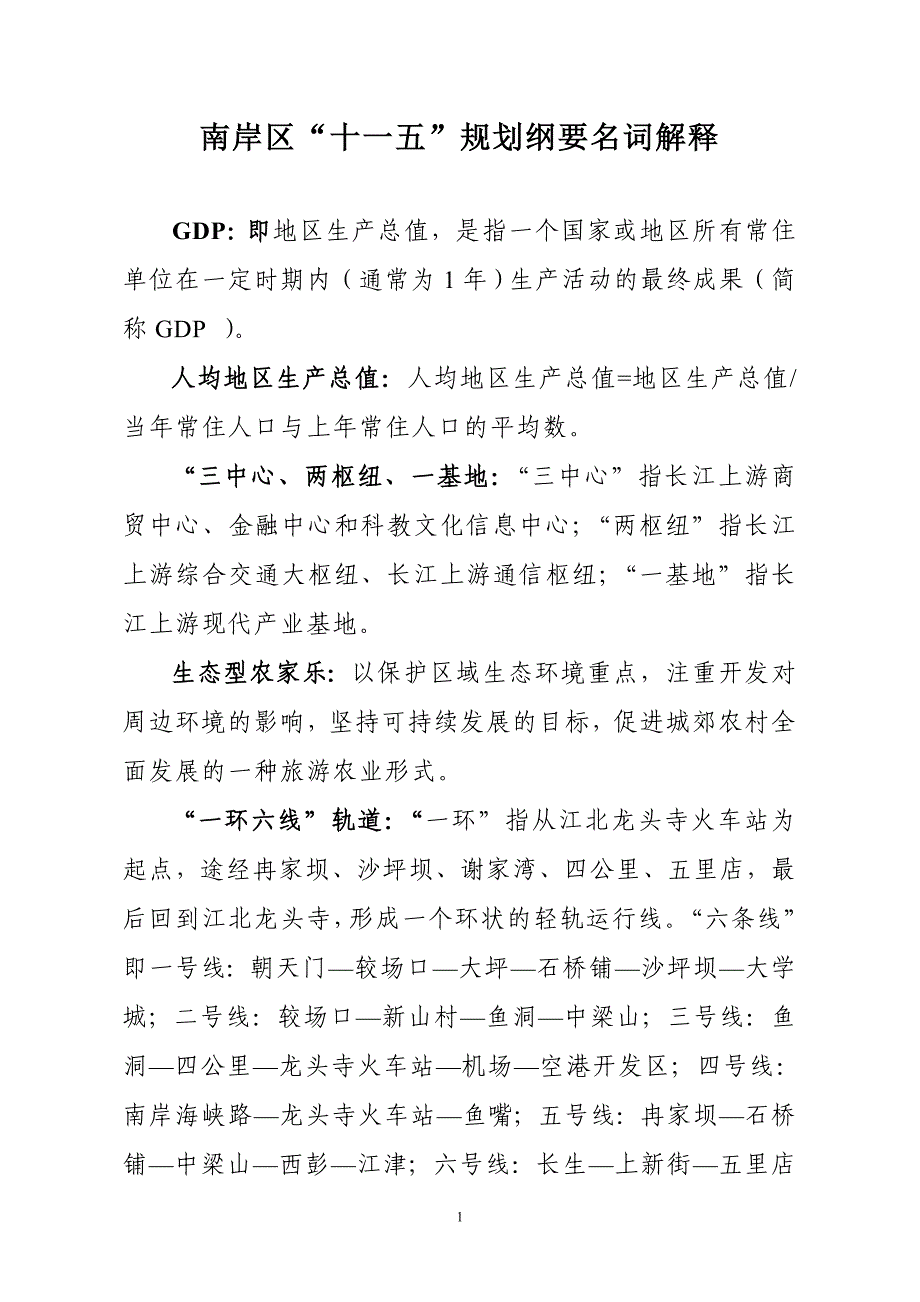 南岸区“十一五”规划纲要名词解释
GDP: 即地区生产总值，是指一个国家或地区所有常住
单位在一定时期内（通常为1年）生产活动的最终成果（简
称GDP ）。
人均地区生产总值：人均地区生产总值=地区生产总值/
当年常住人口与上年常住人口的平均数。
“三中心、两枢纽、一基地：“三中心”指长江上游商
贸中心、金融中心和科教文化信息中心；“两枢纽”指长江
上游综合交通大枢纽、长江上游通信枢纽；“一基地”指长
江上游现代产业基地。
生态型农家乐：以保护区域生态环境重点，注重开发对
周边环境的影响，坚持可持续发展的目标，促进城郊农村全
面发展的一种旅游农业形式。
“一环六线”轨道：“一环”指从江北龙头寺火车站为
起点，途经冉家坝、沙坪坝、谢家湾、四公里、五里店，最
后回到江北龙头寺，形成一个环状的轻轨运行线。“六条线”
即一号线：朝天门—较场口—大坪—石桥铺—沙坪坝—大学
城；二号线：较场口—新山村—鱼洞—中梁山；三号线：鱼
洞—四公里—龙头寺火车站—机场—空港开发区；四号线：
南岸海峡路—龙头寺火车站—鱼嘴；五号线：冉家坝—石桥
铺—中梁山—西彭—江津；六号线：长生—上新街—五里店
1